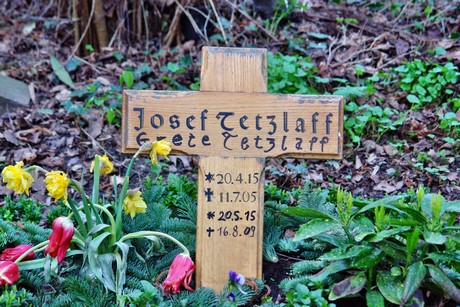 Josef Tetzlaff
Grete Tetzlaff
* 20.4.15
✝ 11.7.05
* 20.5.15
✝ 16.8.09